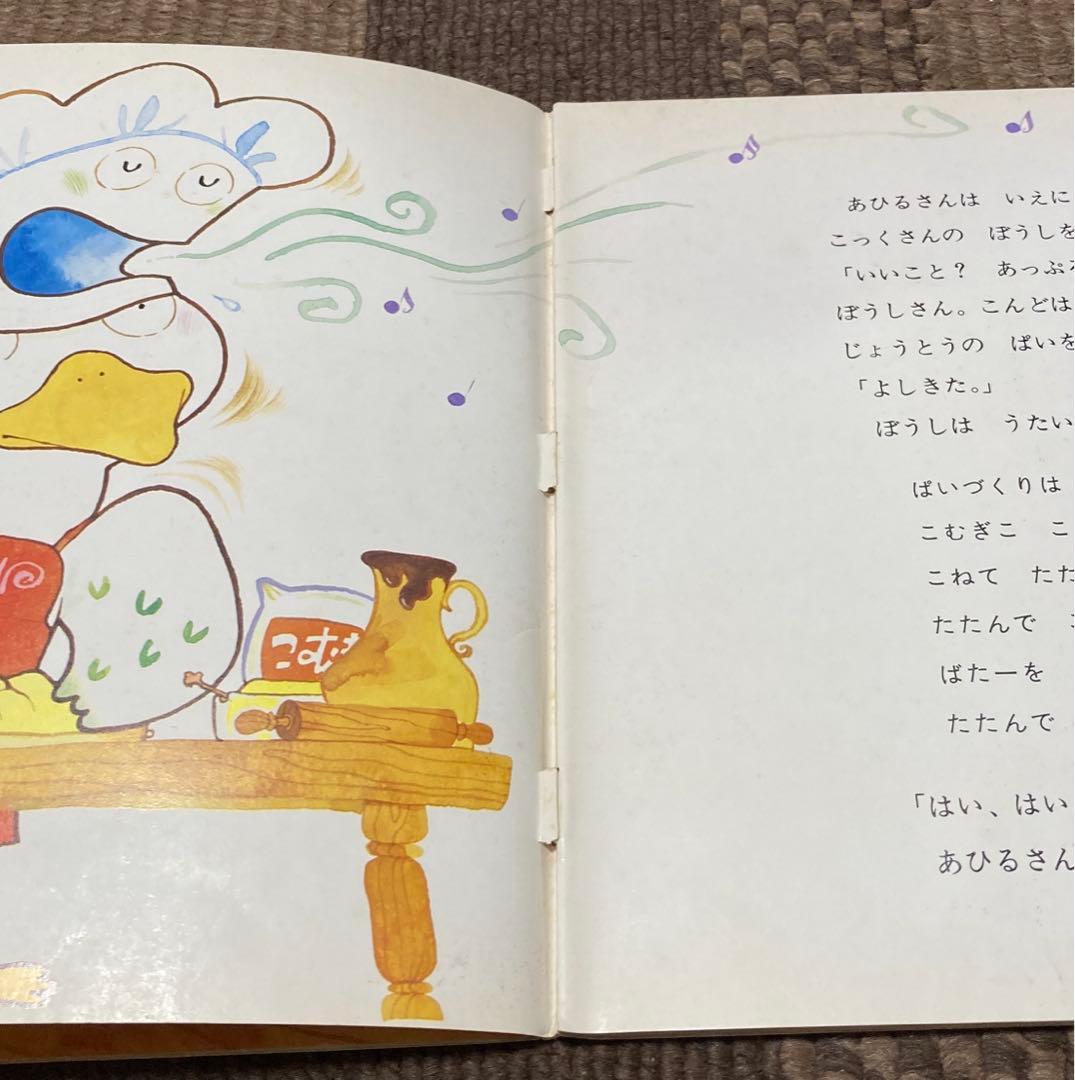 こむ
あひるさんは　いえに
こっくさんの　ぼうしを
「いいこと？　あっぷる
ぼうしさん。こんどは
じょうとうの　ぱいを
「よしきた。」
ぼうしは　うたい
ぱいづくりは
こむぎこ　こ
こねて　たた
たたんで
ばたーを
たたんで
「はい、はい
あひるさん